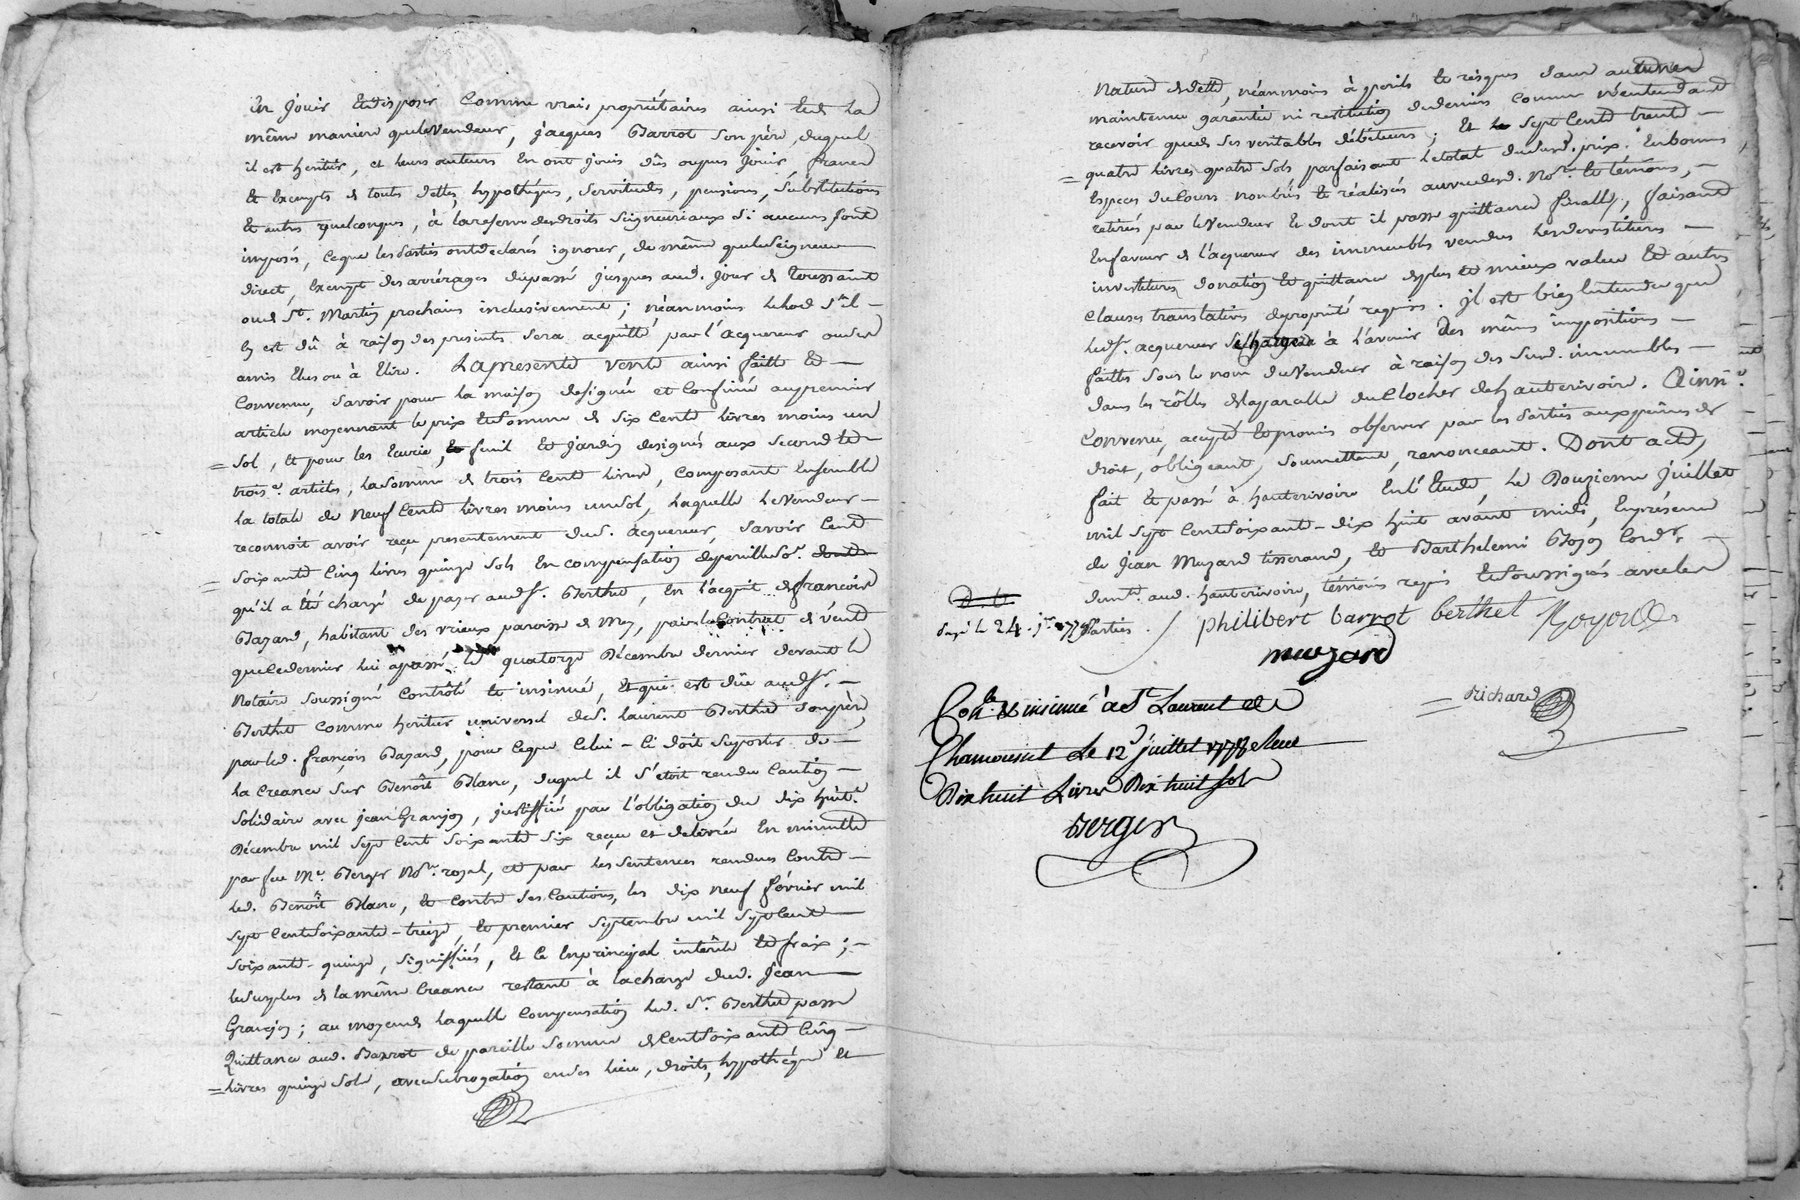 En jouir et disposer comme vrais propriétaires ainsi et de la
même maniere que le Vendeur, jacques Barrot son père, duquel
il est heritier, et leurs auteurs En ont joui dûs ou pus jouir, francs
Et Exempts de touts dettes, hypothéques, servitudes, pensions, substitutions
Et autres quelconques, à la reserve des droits seigneuriaux si aucuns sont
imposés, ce que les parties ont declarés ignorer, de même que le seigneur
direct, Exempt des arrérages du passé jusques aud. jour de toussaint
ou de St. Martin prochain inclusivement; néanmoins le lods s'il
En est dû à raison des presentes sera acquitté par l'acquereur ou ses
amis Elus ou à Elire. La presente vente ainsi faitte et
Convenue, savoir pour la maison designée et Confinée au premier
article moyennant le prix et somme de six Cents livres moins un
sol, Et pour les Ecurie, fenil et jardin designés aux second et
trois.e articles, la somme de trois Cent livres, composant Ensemble
la totale de Neuf Cents livres moins un sol, laquelle le Vendeur
reconnoit avoir reçu presentement dud. acquereur, savoir Cent
soixante Cinq livres quinze sols En compensation de pareille so.e
qu'il a Eté chargé de payer aud. sr. Berthet, En l'acquit de françois
Bazard, habitant des vieux paroisse de Mey, par le Contrat de vente
que ce dernier lui a passé le quatorze Décembre dernier devant le
Notaire soussigné Contrôlé et insinué, Et qui est dûe aud. sr.
Berthet comme heritier universel de s. laurent Berthet son père,
par led. françois Bazard, pour ce que celui-ci doit suporter de
la Creance sur Benoît Blanc, duquel il s'etoit rendu Caution
solidaire avec jean Granjon, justiffiée par l'obligation du dix huit.e
Décembre mil sept Cent soixante six reçue et delivrée En minutte
par feu Me. Berger No.re royal, et par les sentences rendues Contre
led. Benoît Blanc, et contre ses Cautions, les dix neuf février mil
sept Cent soixante-treize, et premier septembre mil sept Cent
soixante-quinze, signiffiées, Et ce En principal intérêts et frais;
le surplus de la même Creance restant à la charge dud. jean
Granjon; au moyen de laquelle compensation led. sr. Berthet passe
Quittance aud. Barrot de pareille somme de Cent soixante Cinq
livres quinze sols, avec subrogation en ses lieu, droits, hypothéque et
nature de dette, néanmoins à perils et risques sans autune
maintenue garantie ni restitution de deniers comme n'entendant
recevoir que de ses veritables débiteurs; Et sept Cent trente
quatre livres quatre sols parfaisant le total dud. prix. En bonnes
Especes du Cours nombrés et réalisés au vu desd. No.re et témoins,
retirés par le Vendeur Et dont il passe quittance finalle, faisant
En faveur de l'acquereur des immeubles vendus les devestitures
investitures, donation et quittance de plus et mieux value Et autres
Clauses translatives de proprieté requises. il est bien Entendu que
led. sr. acquereur se chargera à l'avenir des mêmes impositions
faittes sous le nom du Vendeur à raison des susd. immeubles
dans les rôlles de la parcelle du Clocher de hauterivoire. Ainsi
Convenu, accepté et promis observer par les parties aux peines de
droit, obligeant, soumettant, renonceant. Dont acte,
fait Et passé à hauterivoire En l'Etude, le Douzieme juillet
mil sept Cent soixante-dix huit avant midi, En présence
de jean Muzard tisserand, et Barthelemi Bozon Cord.r
demt. aud. hauterivoire, témoins requis et soussignés avec les
Parties.
philibert barrot berthet
muzard
Richard
Cont.lé & insinué à St. Laurent de
Chamousset Le 12 juillet 1778 Reçu
Dix huit Livres Dix huit sols
Berger